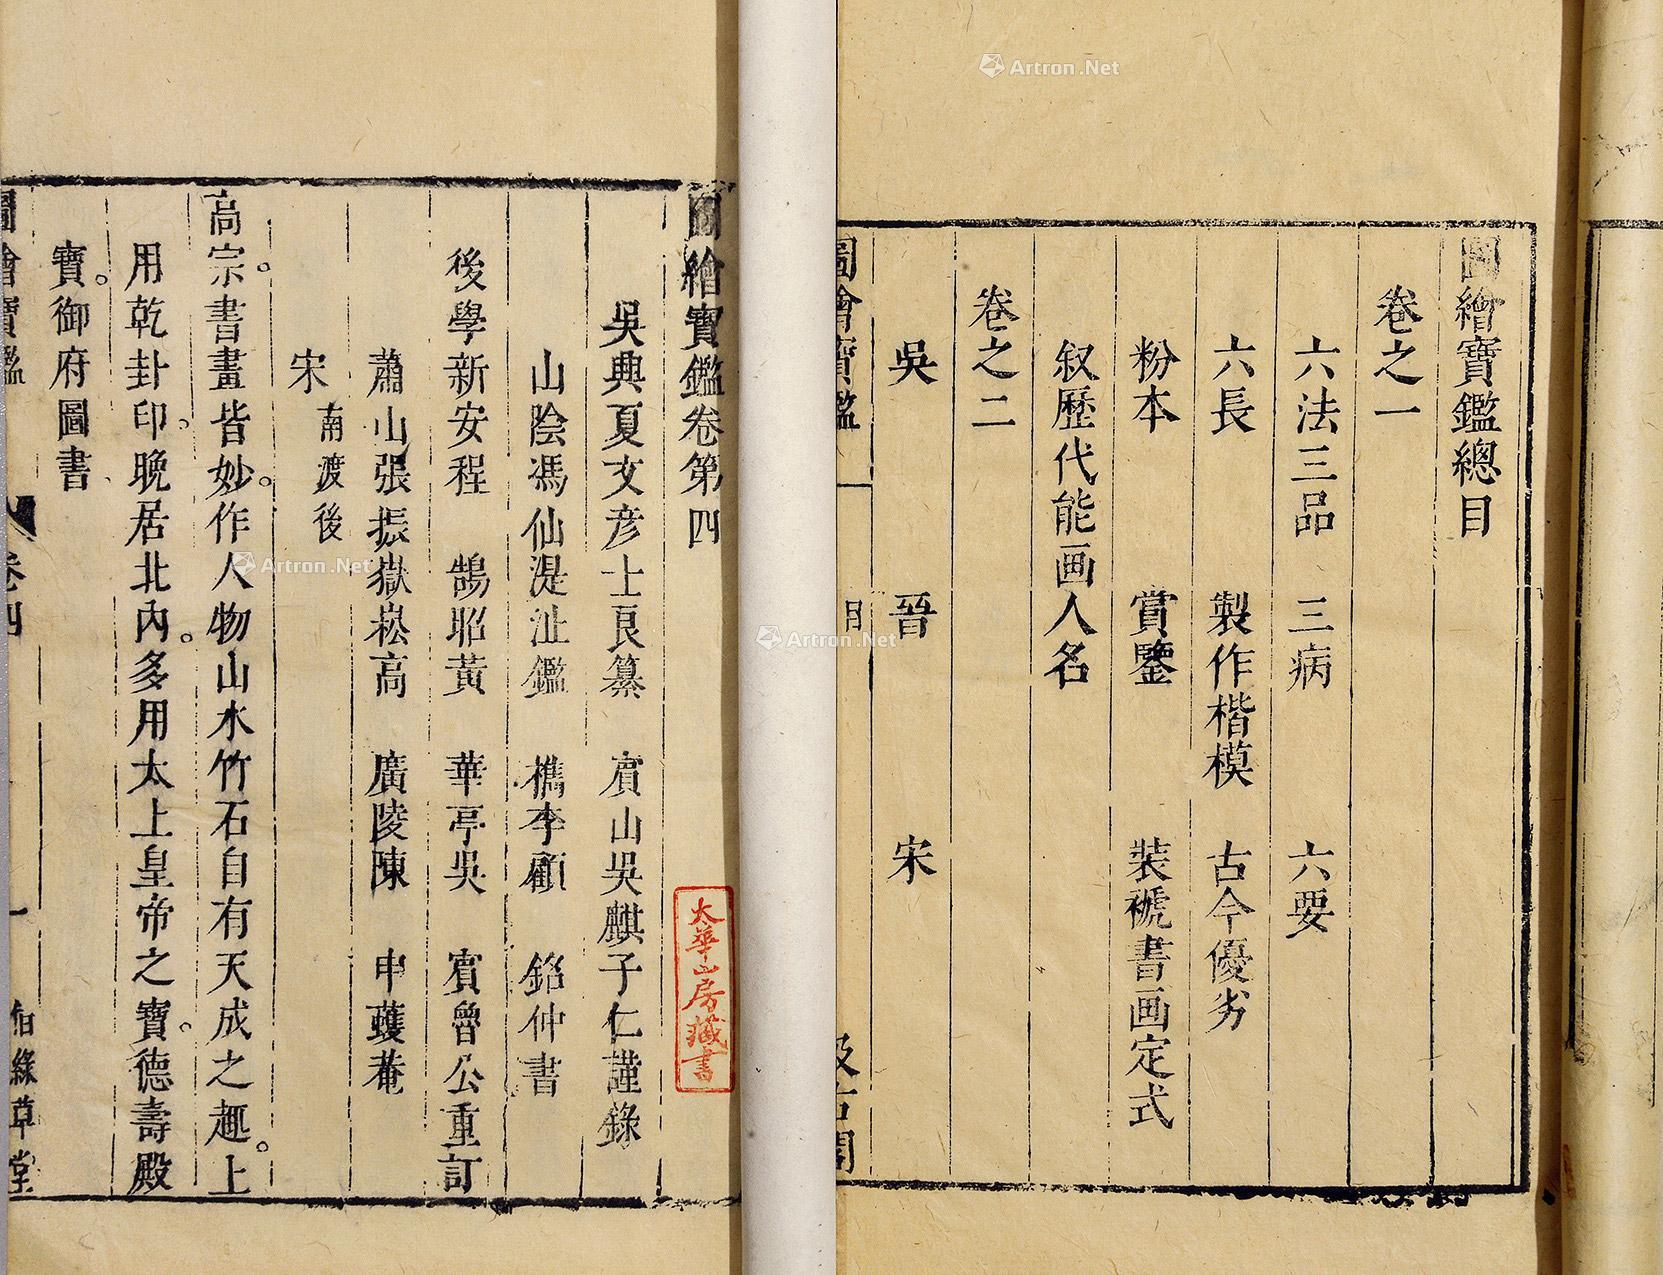 圖繪寶鑑總目
卷之一
六法三品 三病 六要
六長 製作楷模 古今優劣
粉本 賞鑒 裝褫書画定式
叙歷代能画人名
卷之二
吳 晉 宋
圖繪寶鑑 目 汲古閣
圖繪寶鑑卷第四
吳興夏文彦士良纂 賓山吳麒子仁謹錄
山陰馮仙湜沚鑑 檇李顧 銘仲書
後學新安程 鵠昭黃 華亭吳 賓魯公重訂
蕭山張振嶽崧高 廣陵陳 申蘐菴
宋 南渡後
高宗書畫皆妙作人物山水竹石自有天成之趣。上
用乾卦印。晚居北內。多用太上皇帝之寶。德壽殿
寶。御府圖書
圖繪寶鑑 卷四 一 借綠草堂
太華山房藏書
Artron.Net
Artron.Net
Artron.Net